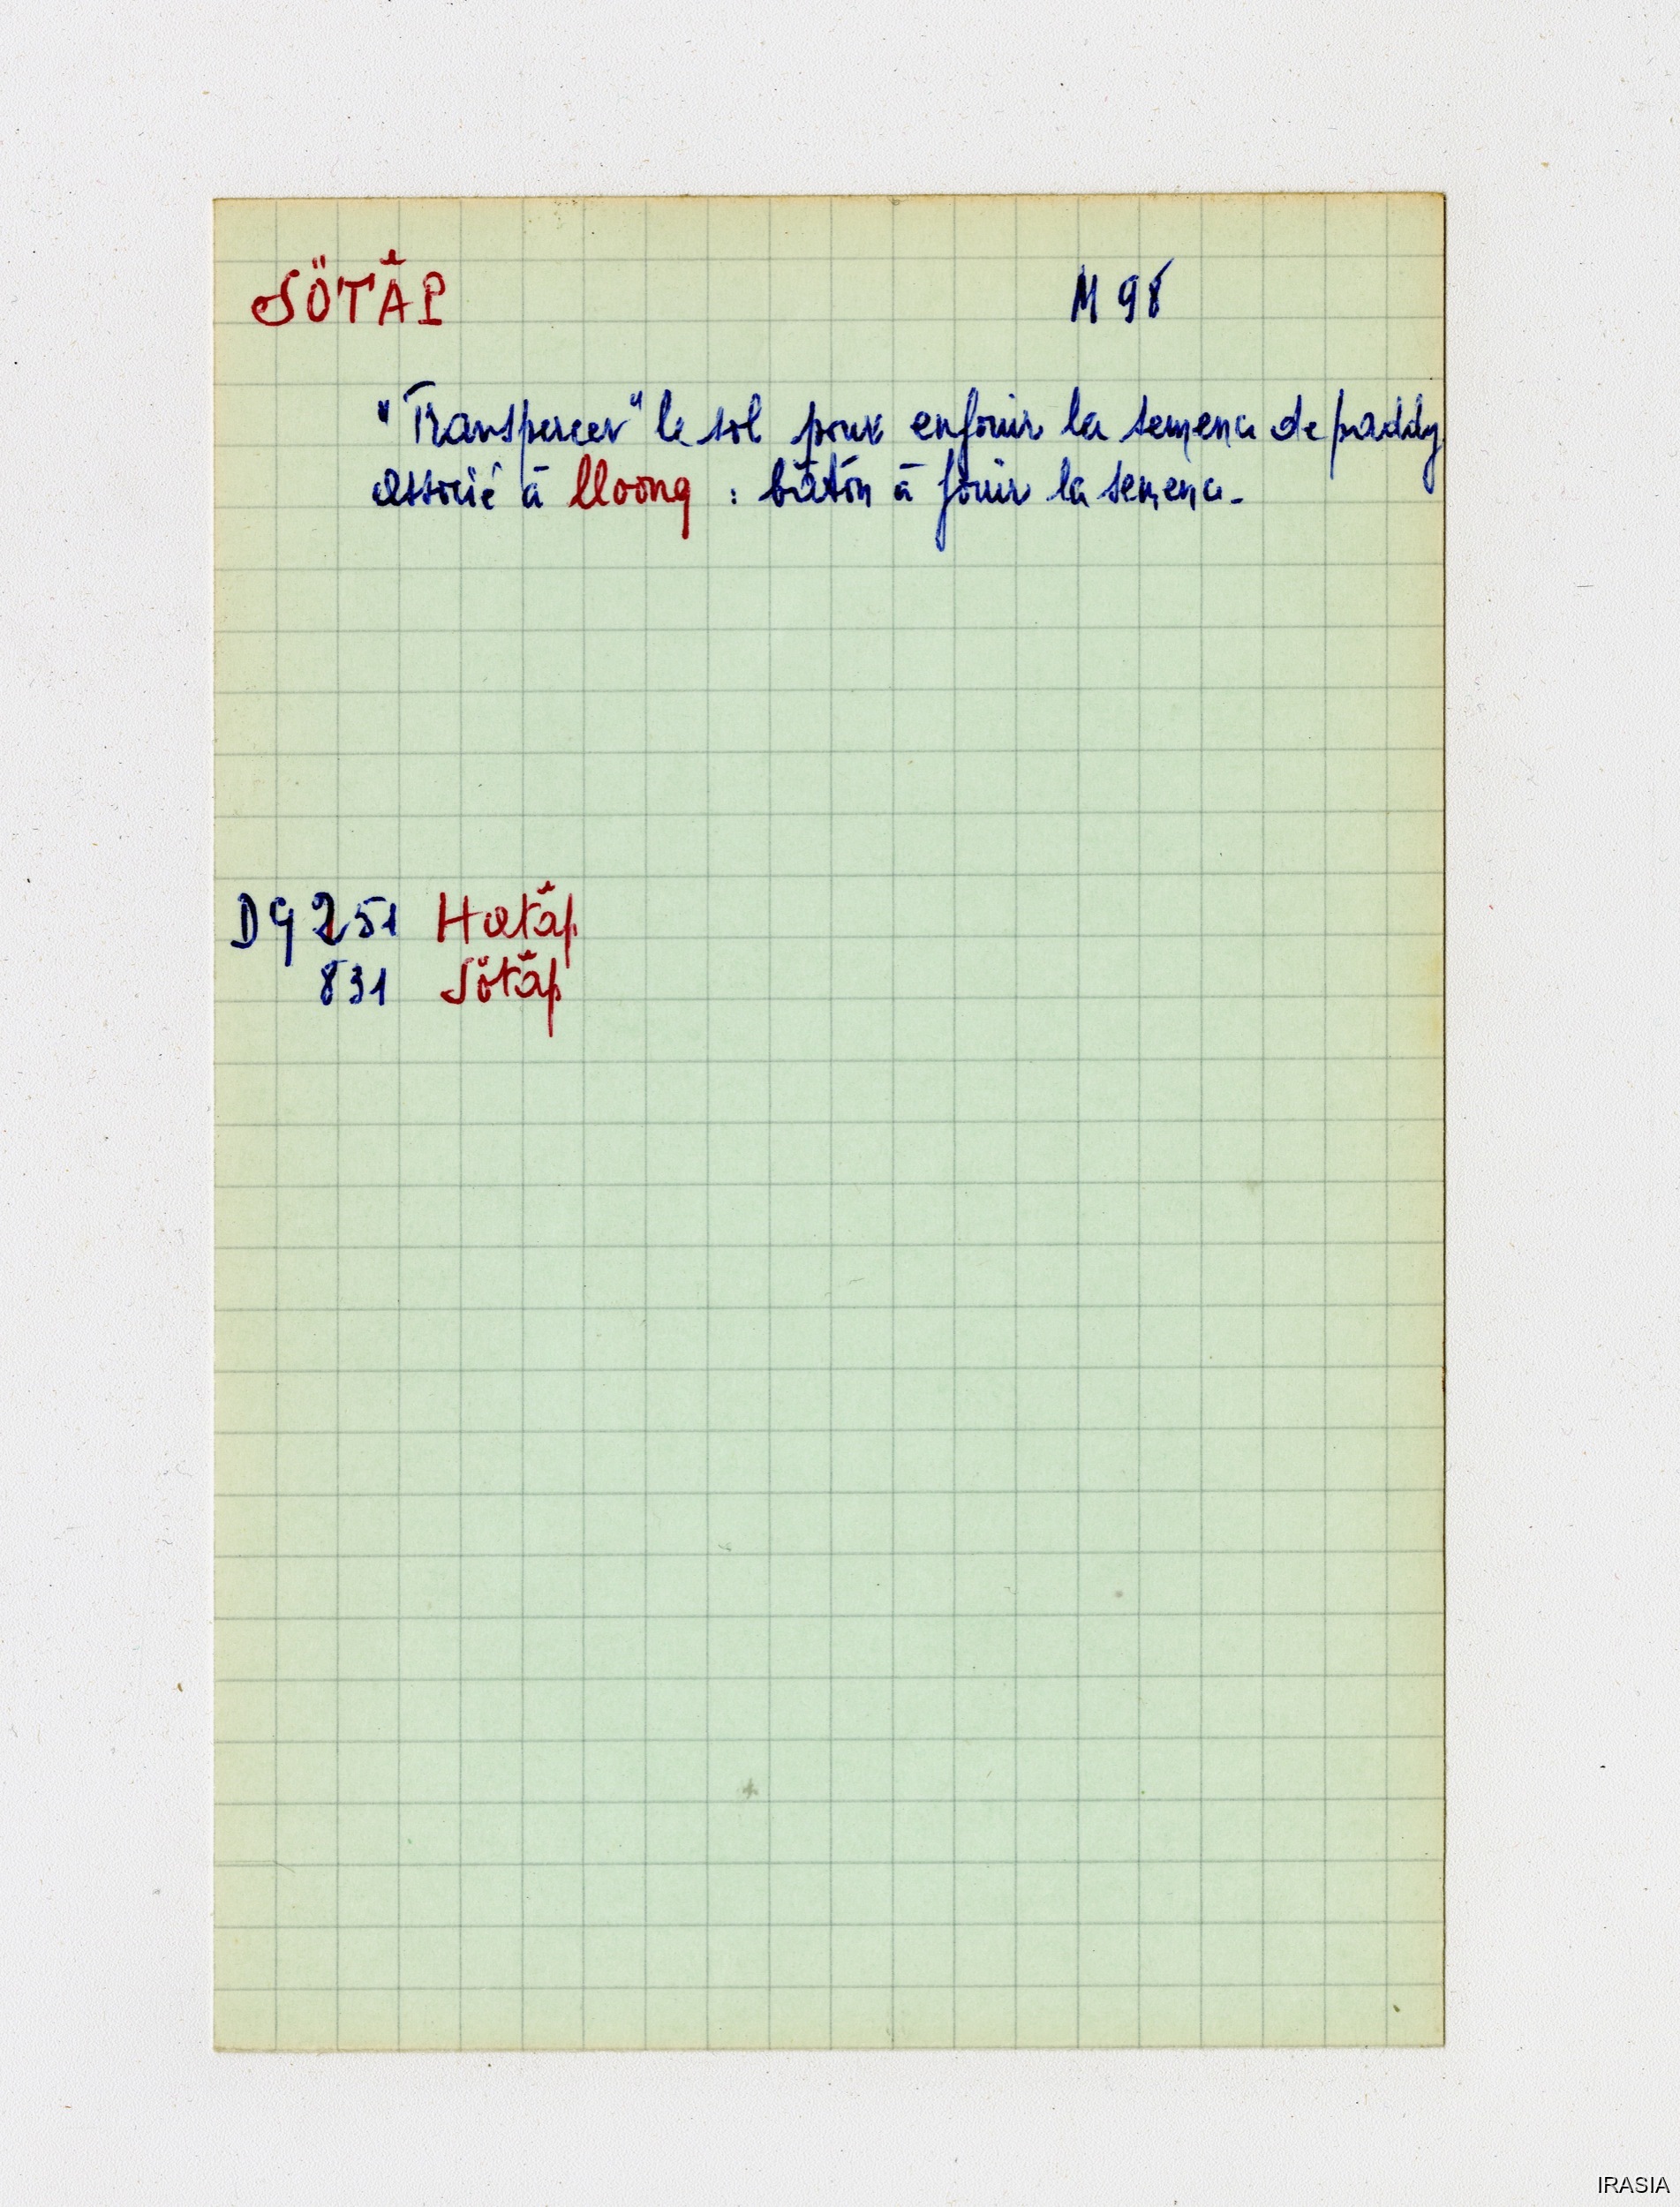 SÖTĂP M 98
"Transpercer" le sol pour enfouir la semence de paddy
associé à lloong : bâton à fouir la semence.
DG 251 Hatăp
831 Sötăp
IRASIA